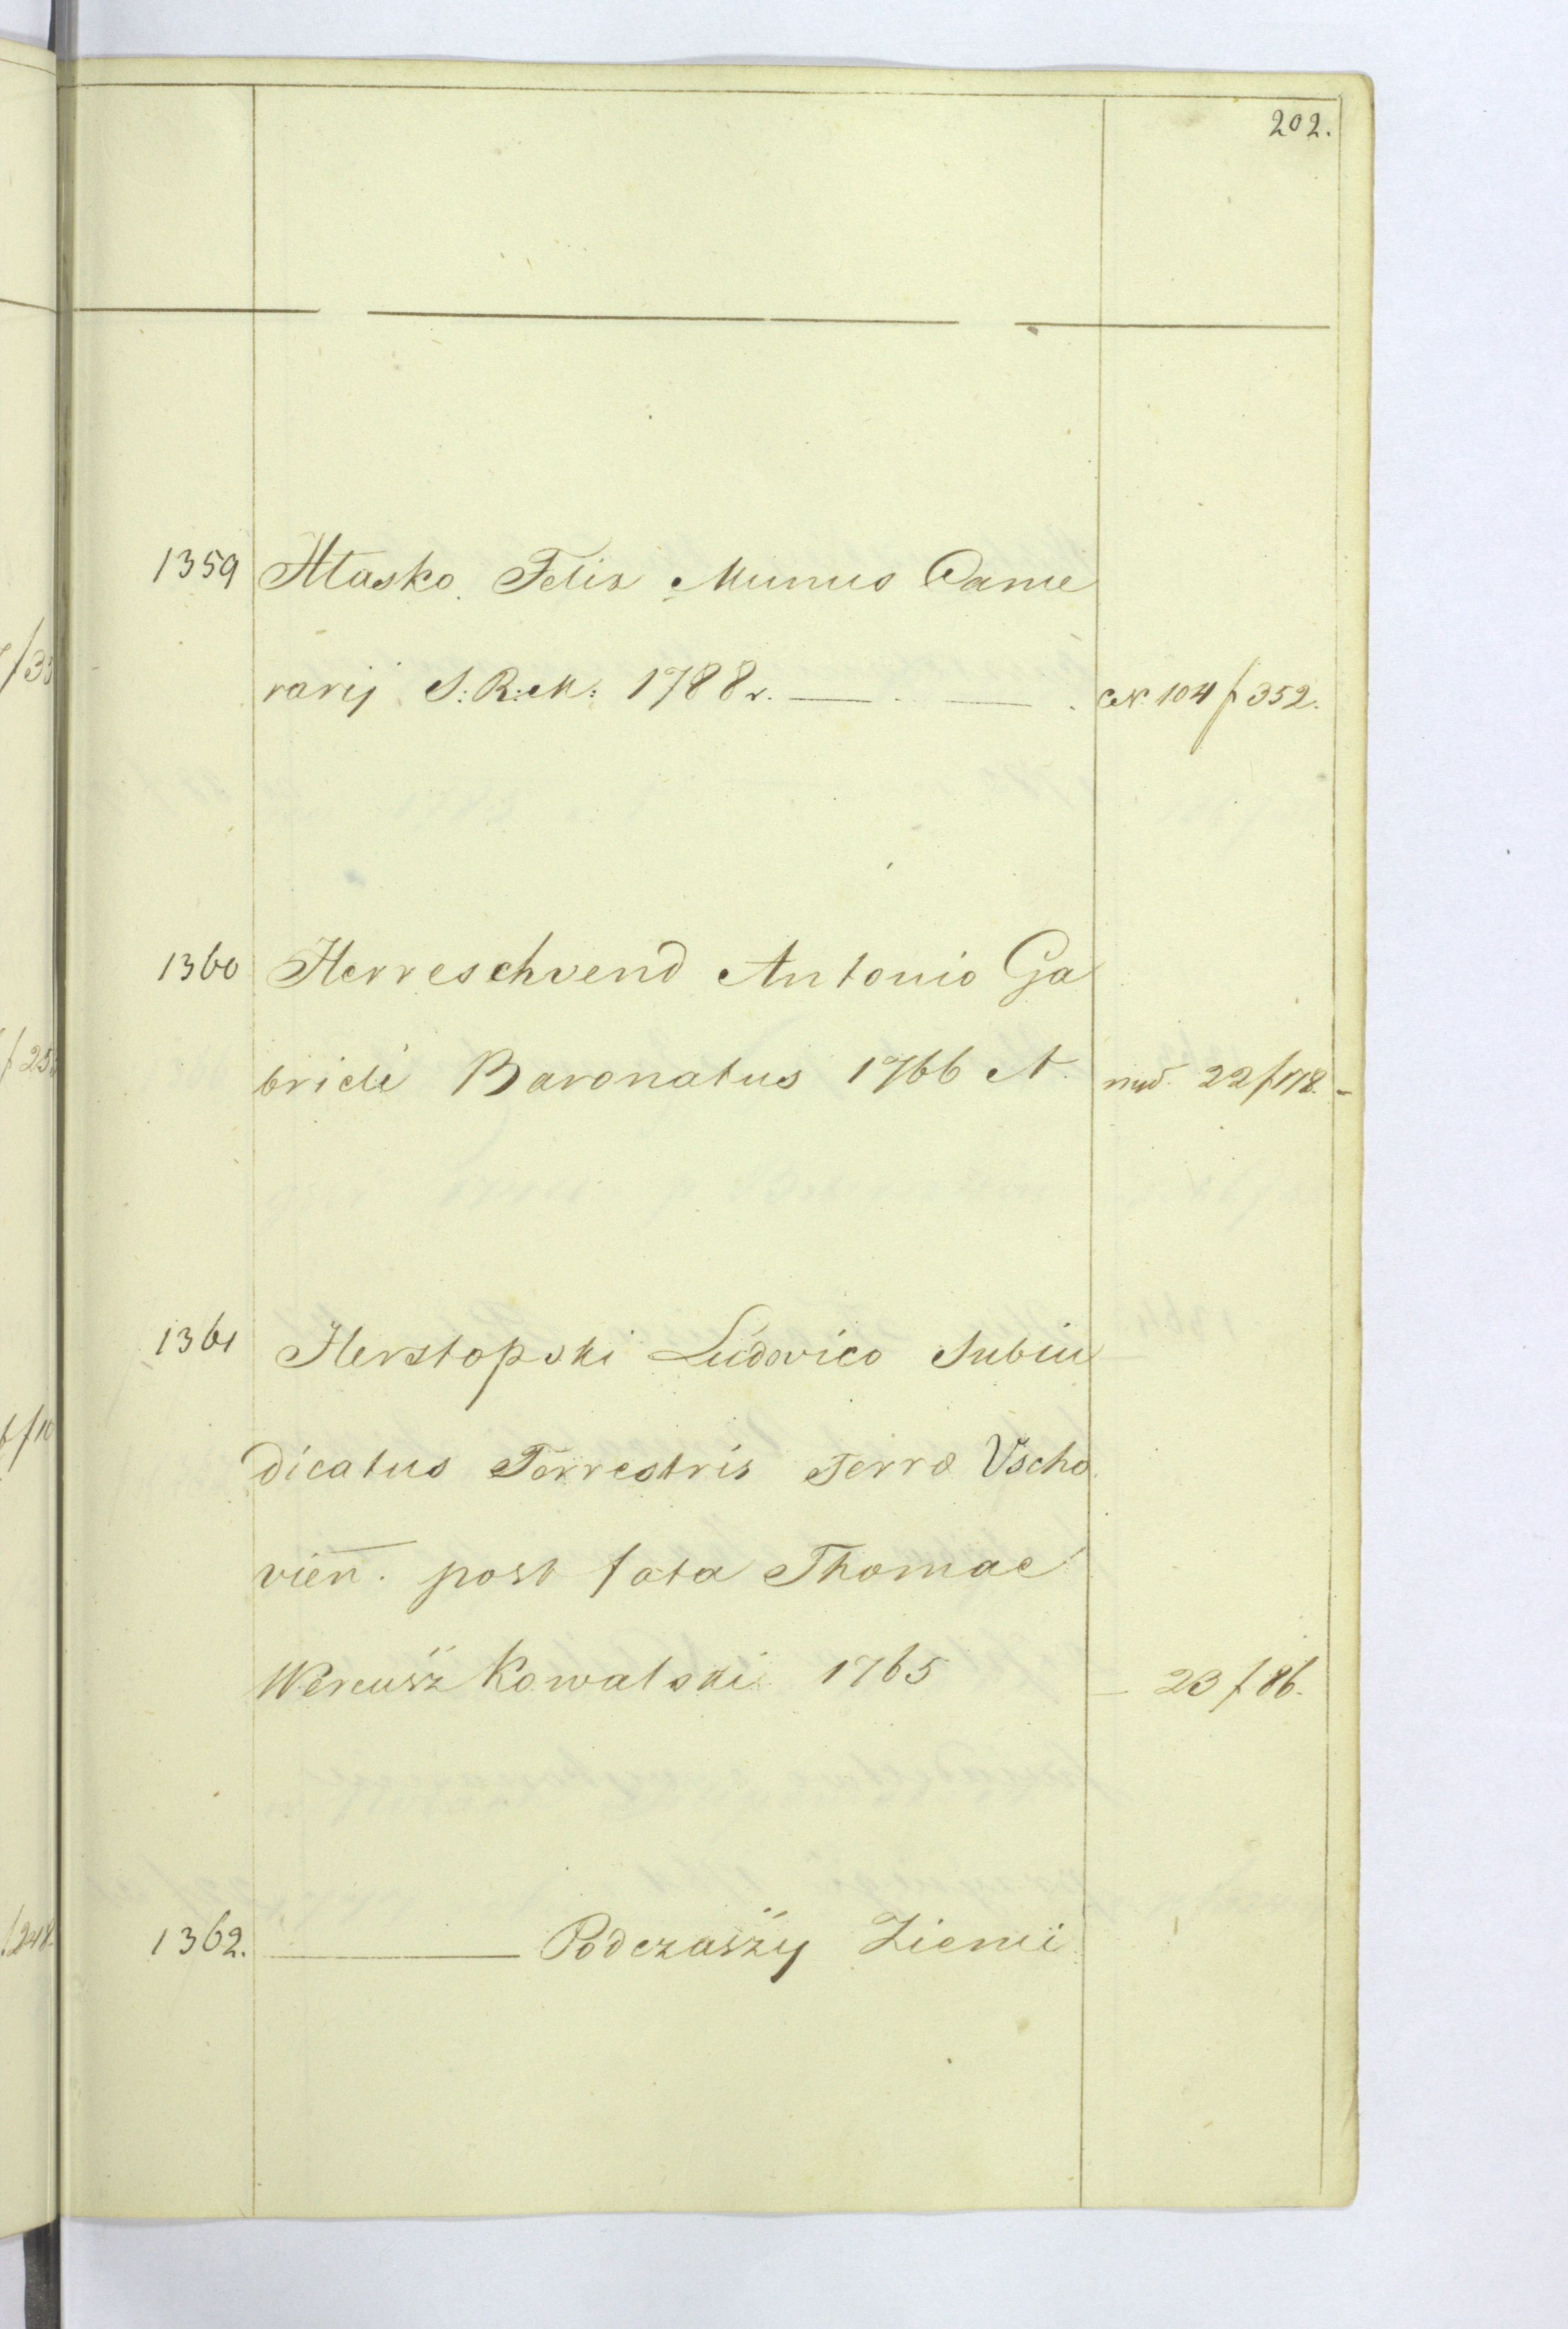 202.
1359 Hłasko Felix Munus Came
rarij S:R:M: 1788 r. — — N. 104 f 352.
1360 Herreschvend Antonio Ga
brieli Baronatus 1766 A. 22 f 178.
1361 Herstopski Ludovico Subiu
dicatus Terrestris Terræ Vscho
vien. post fata Thomae
Wereusz Kowalski 1765 — 23 f 86.
1362. — Podczaszy Ziemi